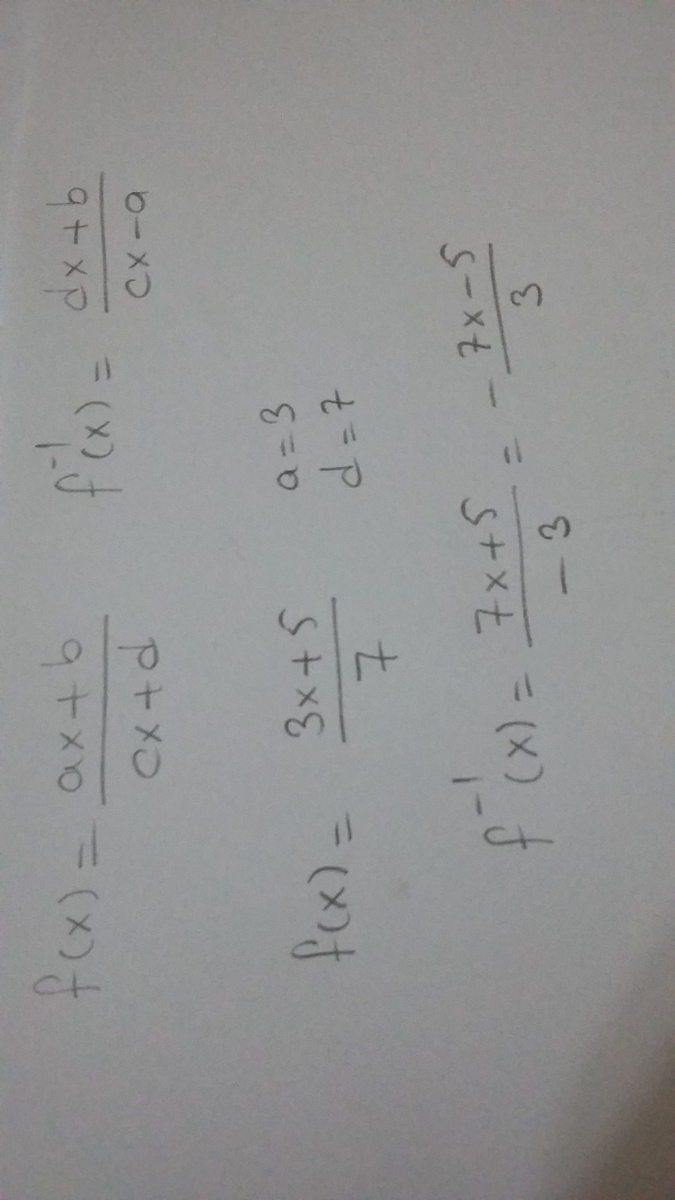 f(x) = \frac{ax+b}{cx+d} f^{-1}(x) = \frac{dx+b}{cx-a}
f(x) = \frac{3x+5}{7} a=3
d=7
f^{-1}(x) = \frac{7x+5}{-3} = -\frac{7x-5}{3}